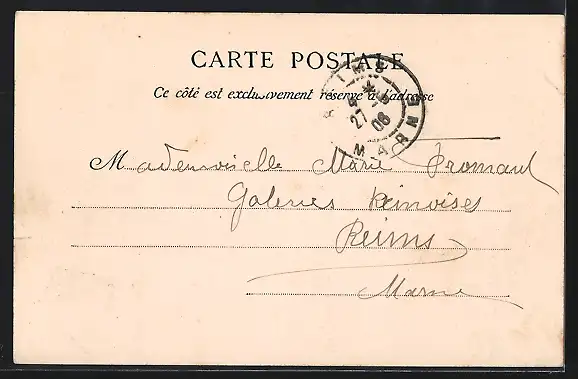 CARTE POSTALE
Ce côté est exclusivement réservé à l'adresse
REIMS
27
06
MARNE
Mademoiselle Marie Fromant
Galeries Rémoises
Reims
Marne